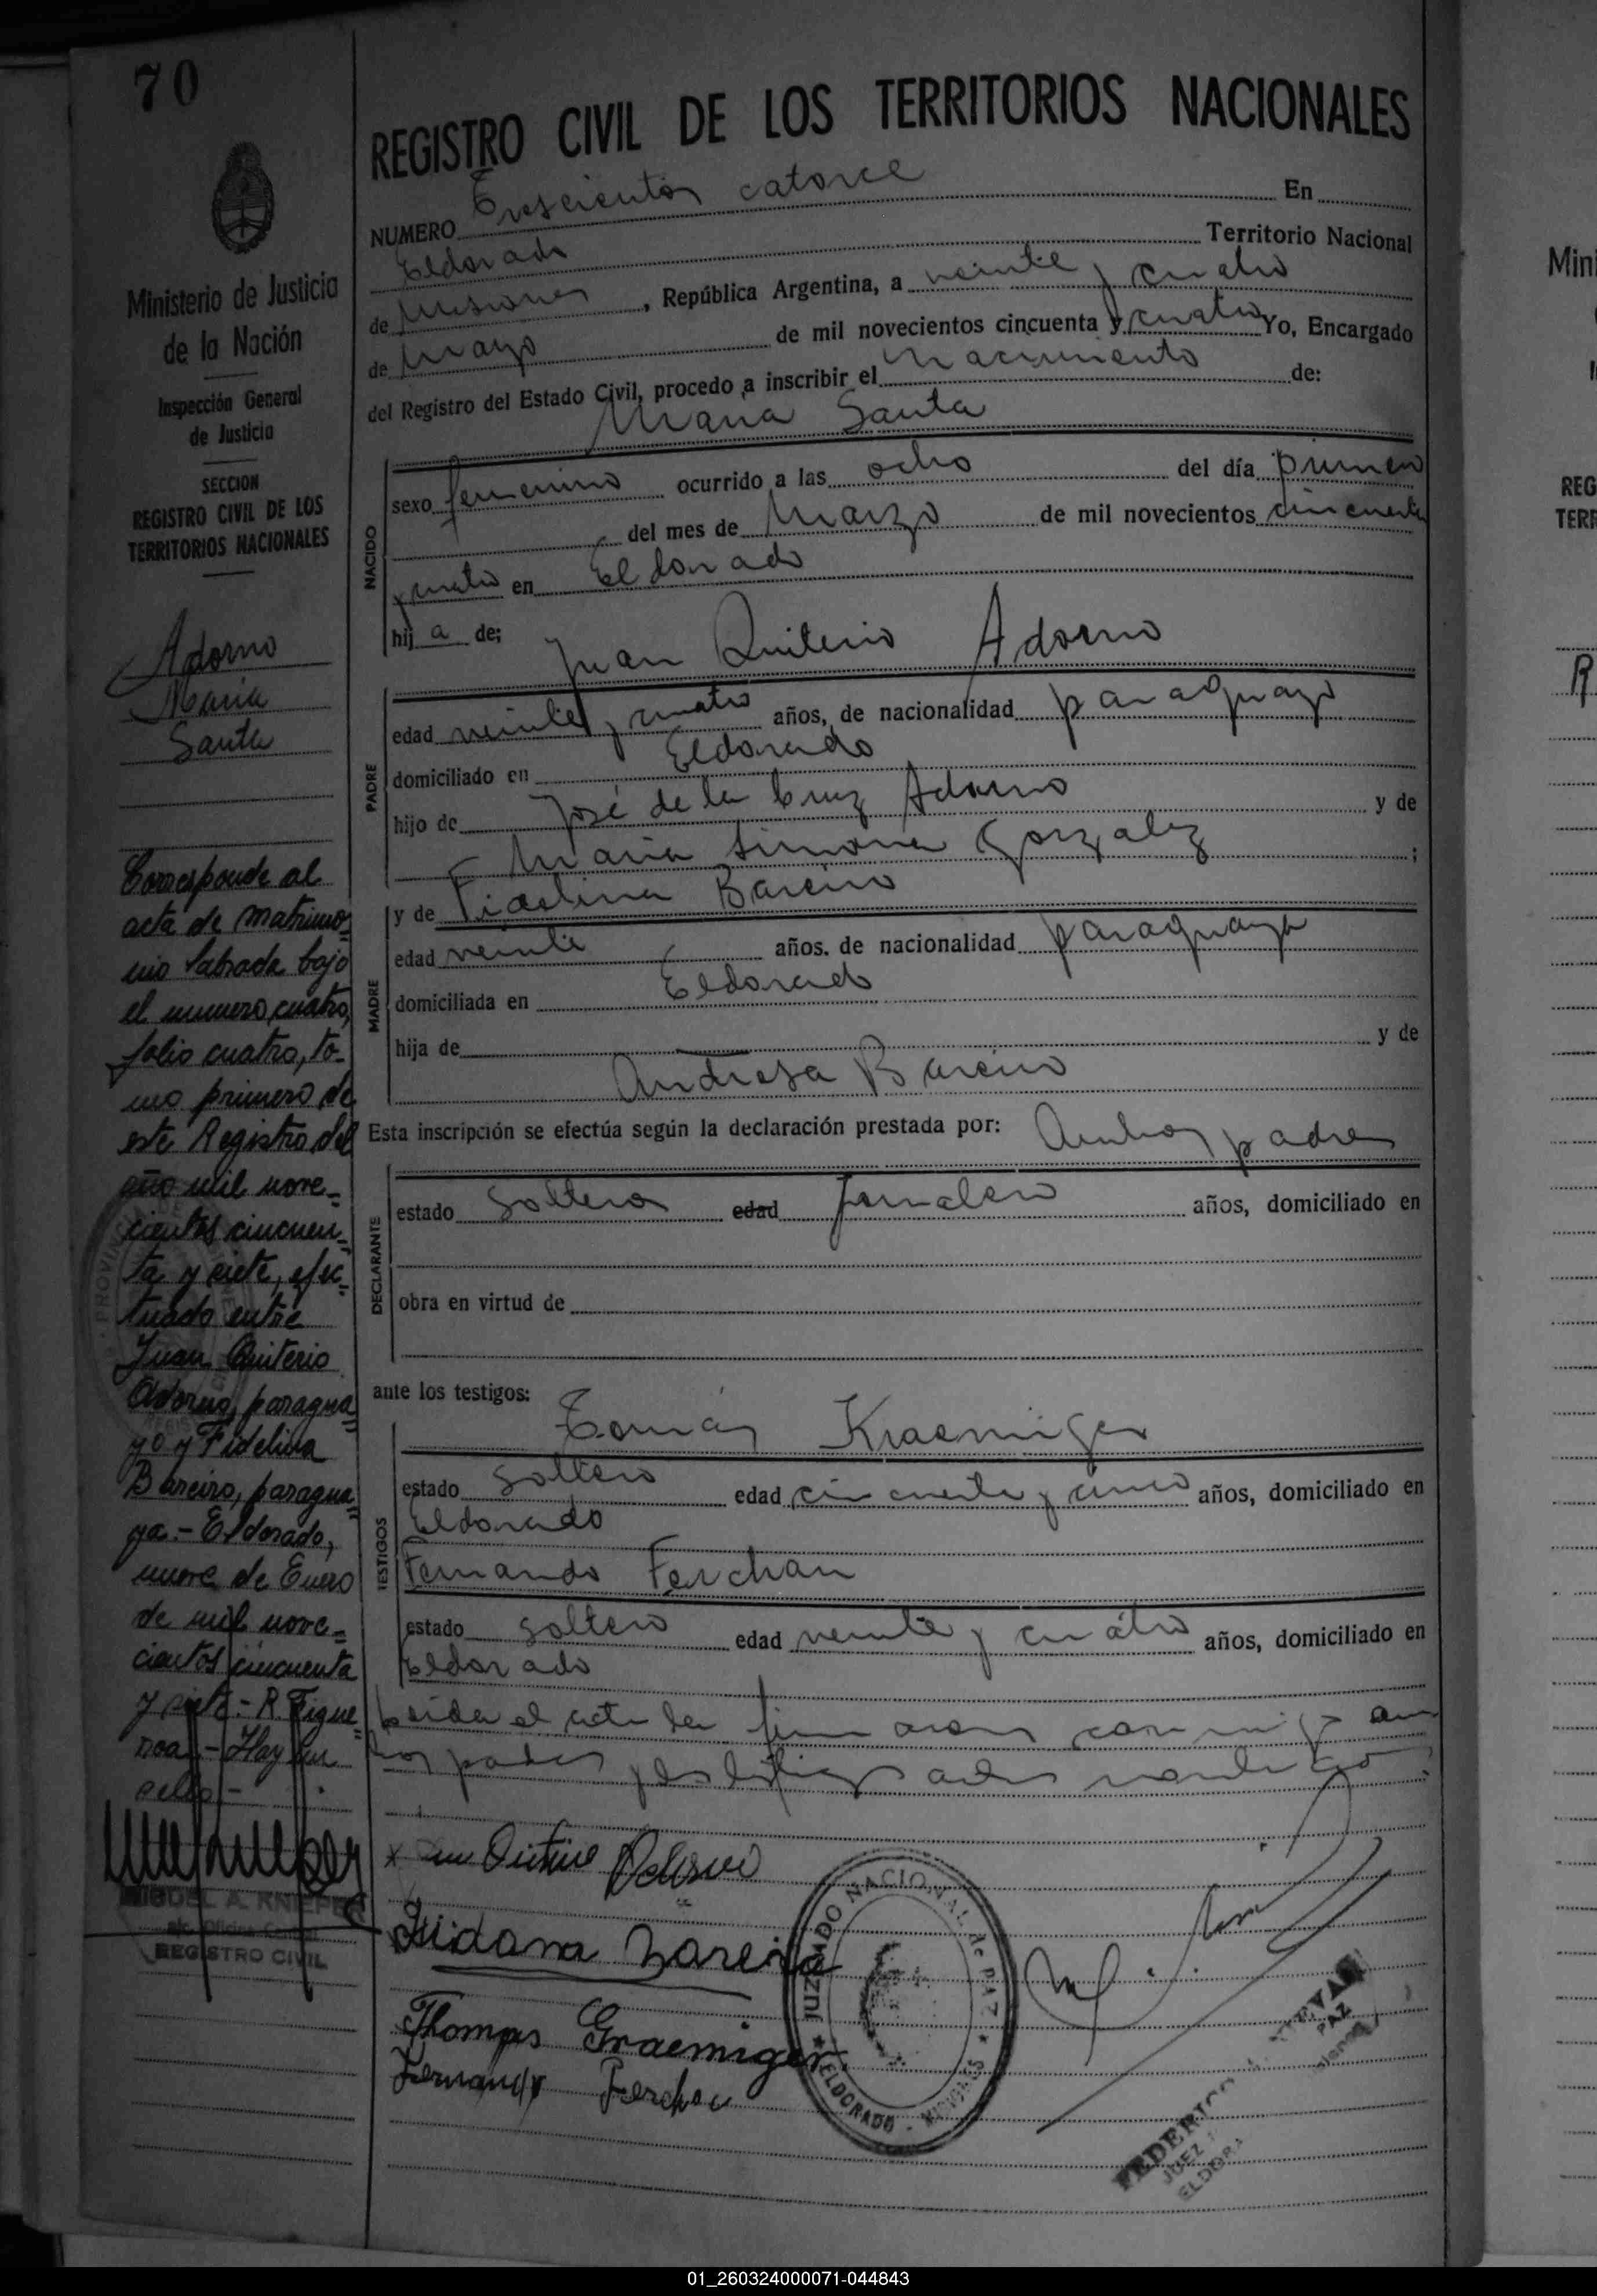 70
REGISTRO CIVIL DE LOS TERRITORIOS NACIONALES
Ministerio de Justicia
de la Nación
Inspección General
de Justicia
SECCION
REGISTRO CIVIL DE LOS
TERRITORIOS NACIONALES
Adorno
Maria
Santa
Corresponde al
acta de matrimo-
nio labrada bajo
el numero cuatro,
folio cuatro, to-
mo primero de
este Registro del
año mil nove-
cientos cincuen-
ta y siete, efec-
tuado entre
Juan Quiterio
Adorno, paragua
yo y Fidelina
Bareiro, paragua
ya.- Eldorado,
nueve de Enero
de mil nove-
cientos cincuenta
y siete.- R. Figue
roa.- Hay un
sello.-
MIGUEL A. KNIEPER
REGISTRO CIVIL
NUMERO Trescientos catorce En
Eldorado Territorio Nacional
de Misiones, República Argentina, a veinte y cuatro
de Mayo de mil novecientos cincuenta y cuatro Yo, Encargado
del Registro del Estado Civil, procedo a inscribir el nacimiento de:
Maria Santa
NACIDO
sexo femenino ocurrido a las ocho del día primero
del mes de Marzo de mil novecientos cincuenta
y cuatro en Eldorado
hija de; Juan Quiterio Adorno
PADRE
edad veinte y cuatro años, de nacionalidad paraguayo
domiciliado en Eldorado
hijo de José de la Cruz Adorno y de
Maria Simona Gonzalez ;
y de Fidelina Bareiro
MADRE
edad veinte años. de nacionalidad paraguaya
domiciliada en Eldorado
hija de y de
Andresa Bareiro
Esta inscripción se efectúa según la declaración prestada por: Ambos padres
DECLARANTE
estado solteros edad jornalero años, domiciliado en
obra en virtud de
ante los testigos:
Tomás Kraemiger
TESTIGOS
estado soltero edad cincuenta y cinco años, domiciliado en
Eldorado
Fernando Ferchan
estado soltero edad veinte y cuatro años, domiciliado en
Eldorado
Leida el acta la firmaron conmigo am
bos padres y los testigos
Fidelina Bareiro
Thomas Graemiger
Fernando Ferchau
JUZGADO NACIONAL de PAZ
ELDORADO - MISIONES
FEDERICO
JUEZ
PAZ
01_260324000071-044843